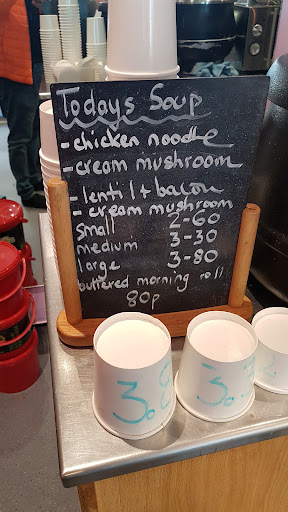 Todays Soup
- chicken noodle
- cream mushroom
- lentil + bacon
- cream mushroom
small 2-60
medium 3-30
large 3-80
buttered morning roll
80p
3.8
3.
2